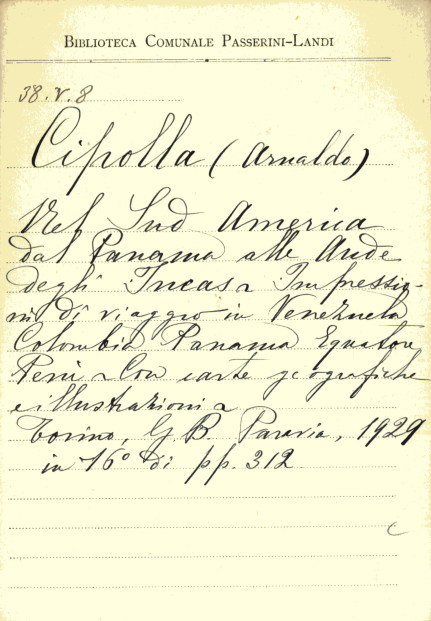 BIBLIOTECA COMUNALE PASSERINI-LANDI
38.V.8
Cipolla (Arnaldo)
Nel Sud America
dal Panama alle Ande
degli Incas - Impressio-
ni di viaggio in Venezuela
Colombia Panama Equatore
Perù - Con carte geografiche
e illustrazioni -
Torino, G. B. Paravia, 1929
in 16° di pp. 312